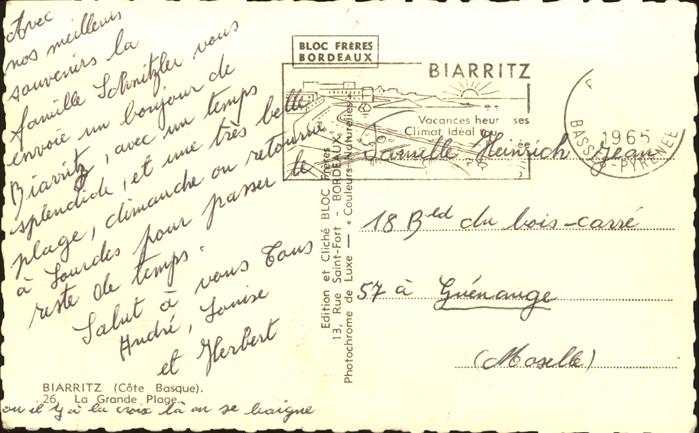 Avec
nos meilleurs
souvenirs la
famille Schnitzler vous
envoie un bonjour de
Biarritz, avec un temps
splendide, et une très belle
plage, dimanche on retourne
à Lourdes pour passer le
reste de temps.
Salut à vous Tous
André, Louise
et Herbert
BIARRITZ (Côte Basque).
26. La Grande Plage.
on il y à la croix là on se baigne
Edition et Cliché BLOC Frères
13, Rue Saint-Fort - BORDEAUX
Photochrome de Luxe — « Couleurs Naturelles »
BLOC FRÈRES
BORDEAUX
BIARRITZ
Vacances heur ses
Climat Idéal
1965
BASSES-PYRENEES
Famille Heinrich Jean
18 Bld du bois-carré
57 à Guénange
(Moselle)